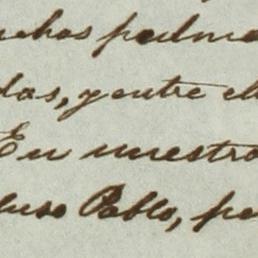 chos palm
das, y entre el
En nuestro
luso Pablo, pe